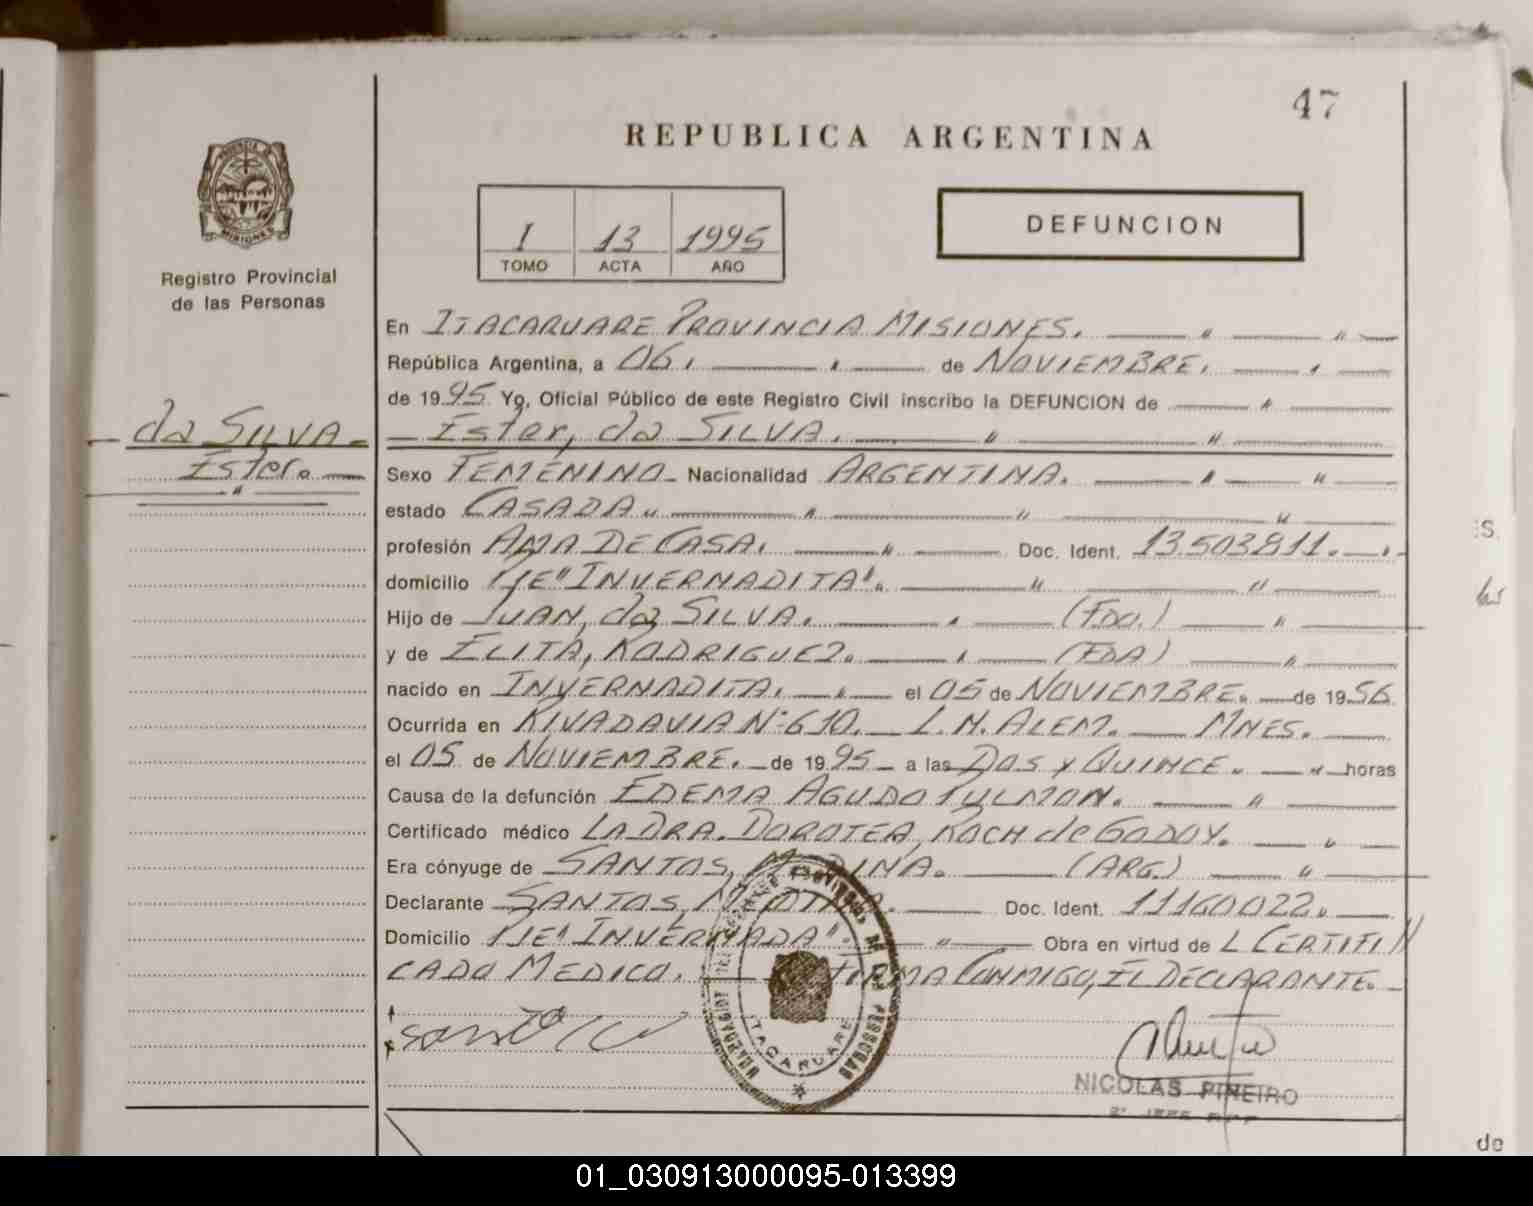 47
REPUBLICA ARGENTINA
PROVINCIA DE
MISIONES
Registro Provincial
de las Personas
I 13 1995
TOMO ACTA AÑO
DEFUNCION
En ITACARUARE PROVINCIA MISIONES.
República Argentina, a 06, de NOVIEMBRE.
de 1995 Yo, Oficial Público de este Registro Civil inscribo la DEFUNCION de
da SILVA
Ester, da SILVA.
Ester.
Sexo FEMENINO Nacionalidad ARGENTINA.
estado CASADA.
profesión AMA DE CASA. Doc. Ident. 13.503.811.
domicilio PJE "INVERNADITA".
Hijo de JUAN, da SILVA. (FDO.)
y de ELITA, RODRIGUEZ. (FDA)
nacido en INVERNADITA. el 05 de NOVIEMBRE. de 1956
Ocurrida en RIVADAVIA Nº 610. L.N. ALEM. MNES.
el 05 de NOVIEMBRE. de 1995 a las DOS Y QUINCE. horas
Causa de la defunción EDEMA AGUDO PULMON.
Certificado médico LA DRA. DOROTEA, KOCH de GODOY.
Era cónyuge de SANTOS, MEDINA. (ARG.)
Declarante SANTOS, MEDINA. Doc. Ident. 11160022.
Domicilio PJE "INVERNADA". Obra en virtud de L CERTIFI
CADO MEDICO. FIRMA CONMIGO, EL DECLARANTE.
ITACARUARE
NICOLAS PIÑEIRO
S.
de
01_030913000095-013399